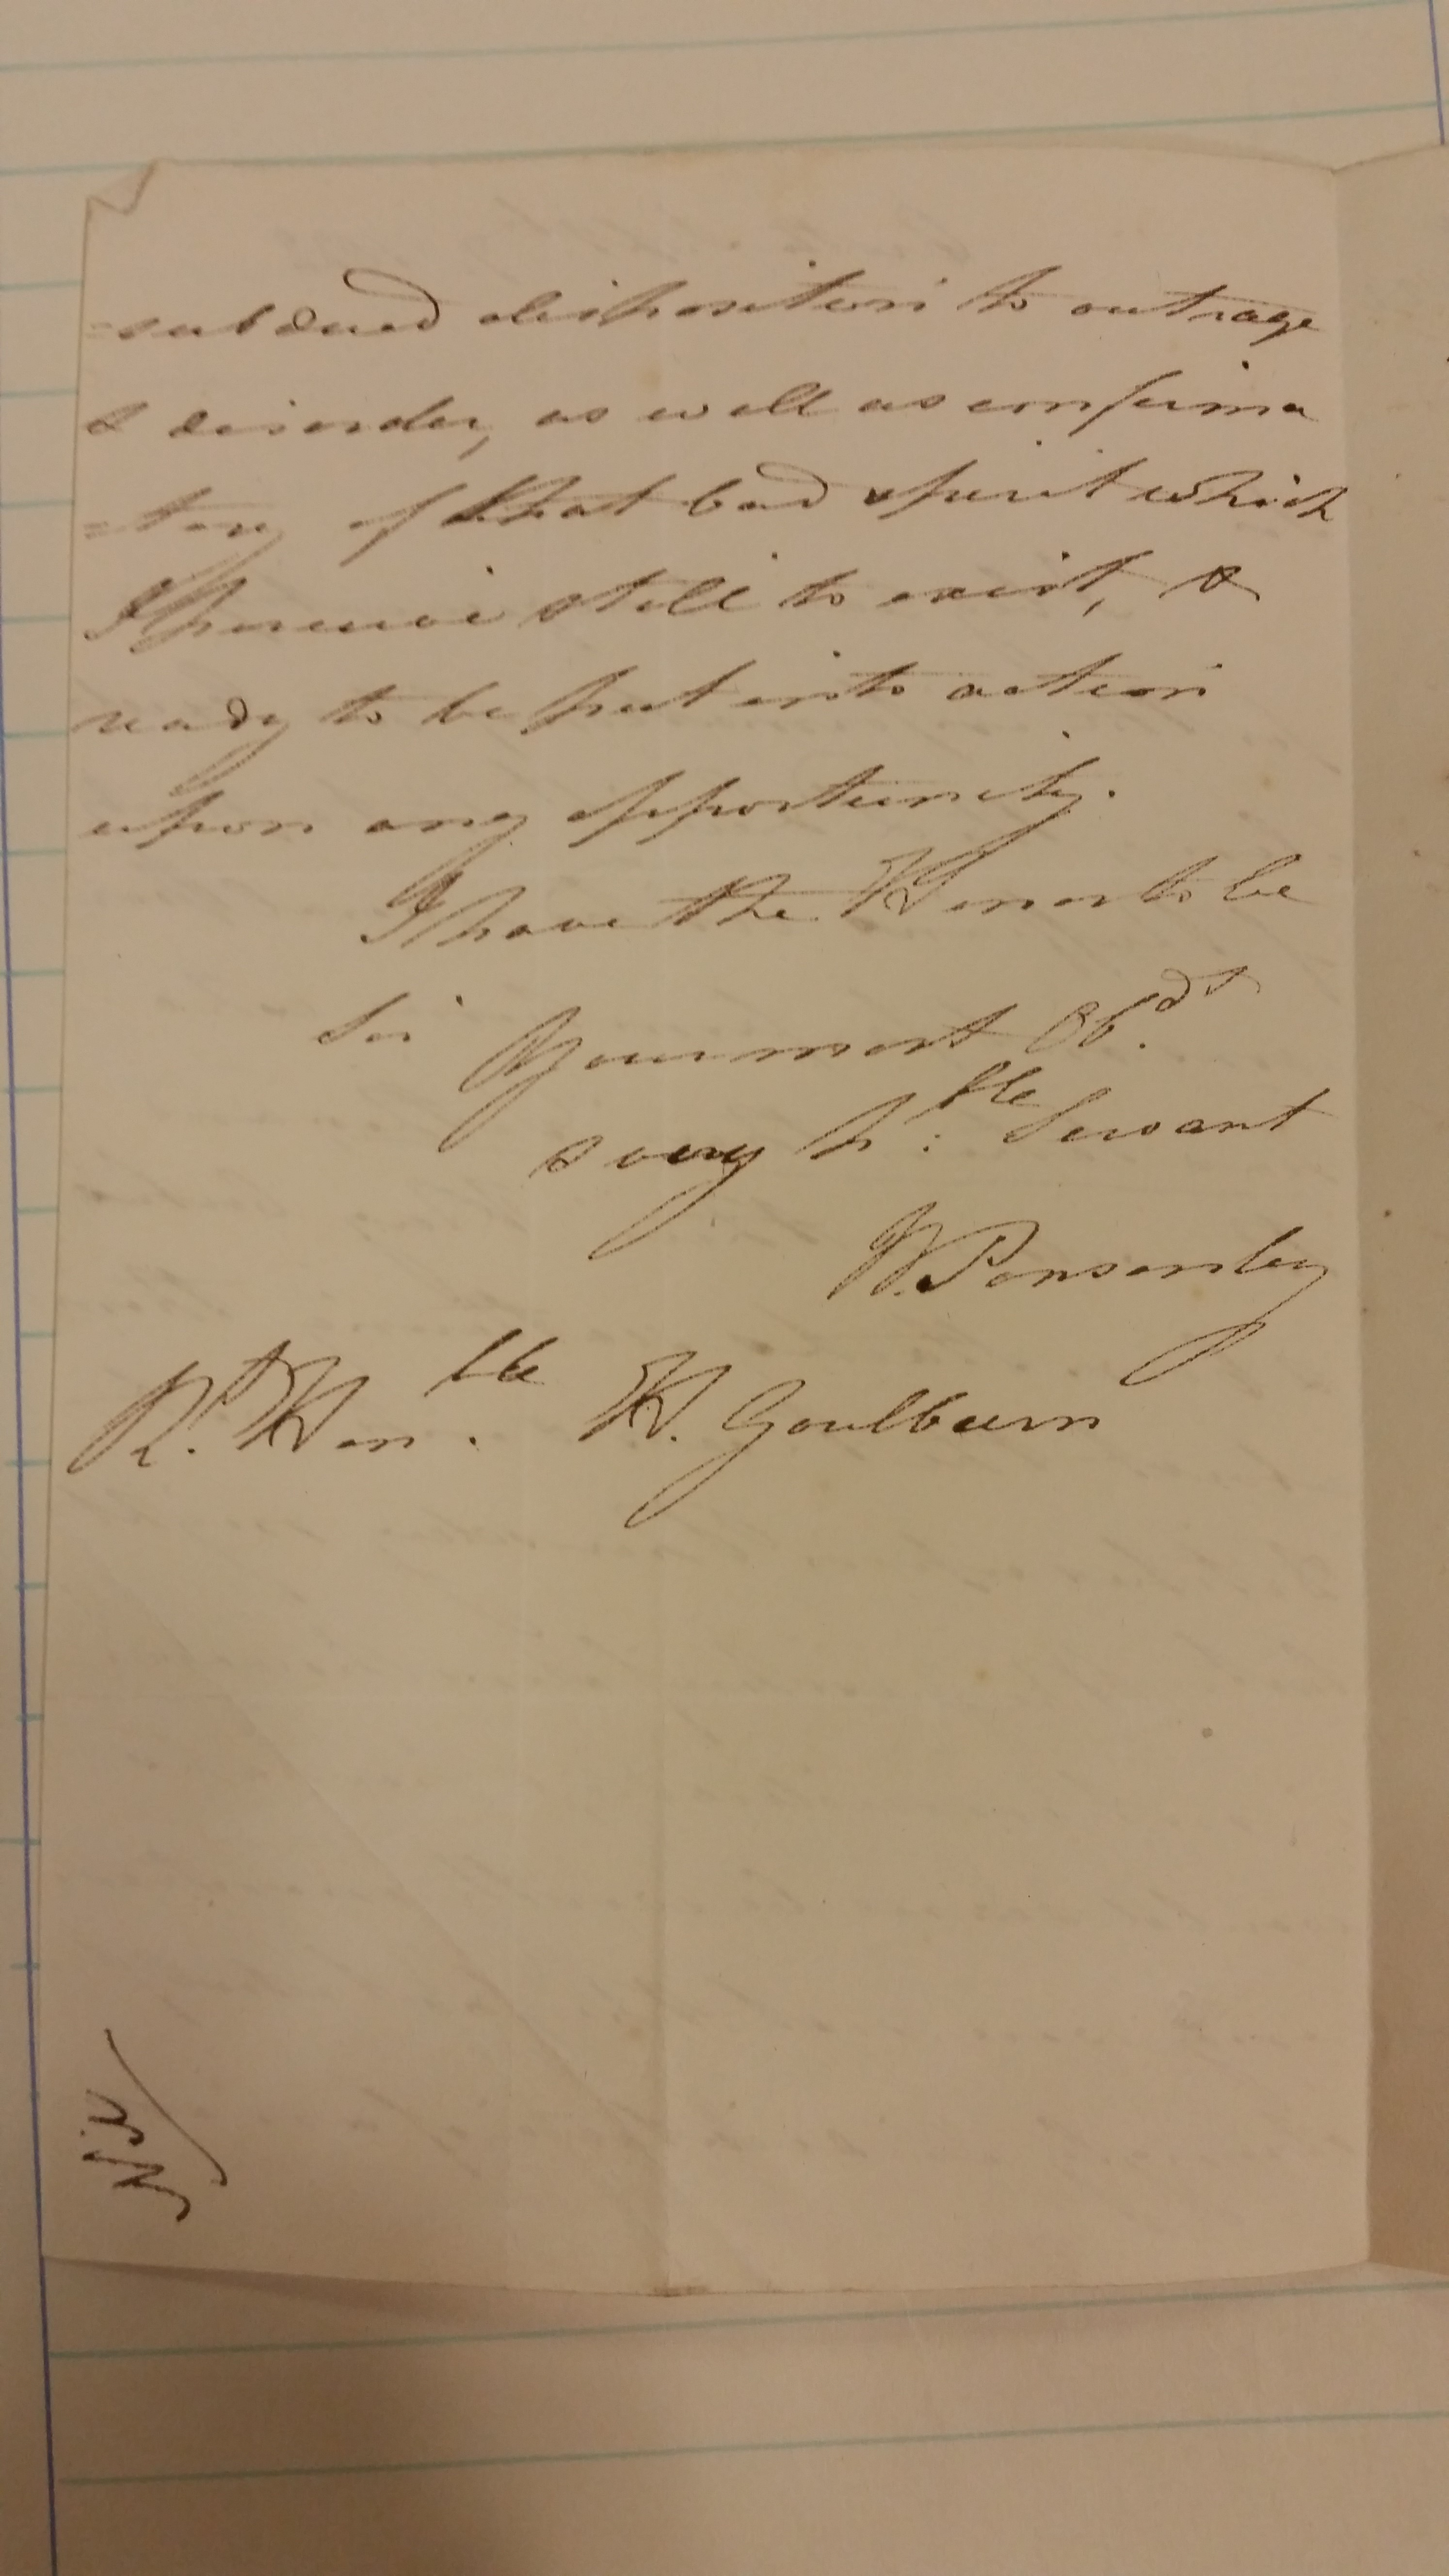 =subdued disposition to outrage
& disorder, as well as confirma
=tory of that bad spirit which
I perceive still to exist, &
ready to be put into action
upon any opportunity.
I have the Honor to be
Sir Your most Ob.dt
& very h:ble Servant
W. Ponsonby
R.t Hon.ble H. Goulburn